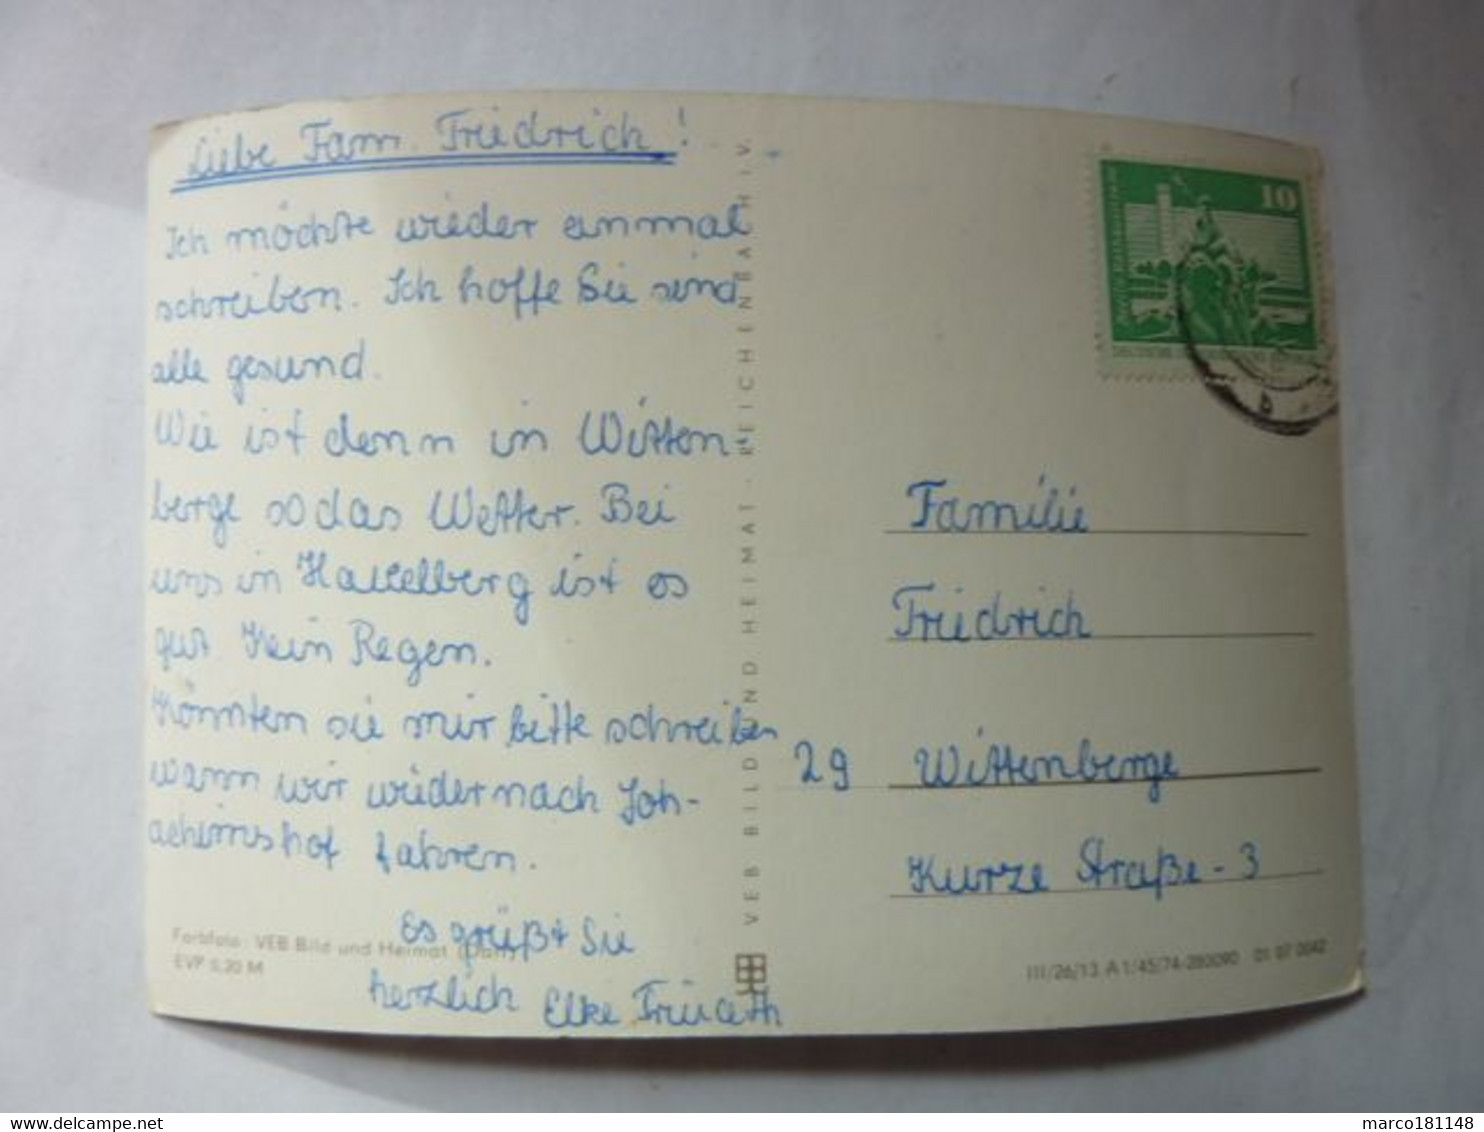 Liebe Fam. Friedrich!
Ich möchte wieder einmal
schreiben. Ich hoffe Sie sind
alle gesund.
Wie ist denn in Witten-
berge so das Wetter. Bei
uns in Hakelberg ist es
gut Kein Regen.
Könnten sie mir bitte schreiben
wann wir wieder nach Joh-
achimshof fahren.
Es grüßt Sie
herzlich Elke
Farbfoto: VEB Bild und Heimat
EVP 0,20 M
VEB BILD UND HEIMAT · REICHENBACH I. V.
10
Familie
Friedrich
29 Wittenberge
Kurze Straße - 3
III/26/13 A 1/45/74-280090 01 07 0042
marco181148